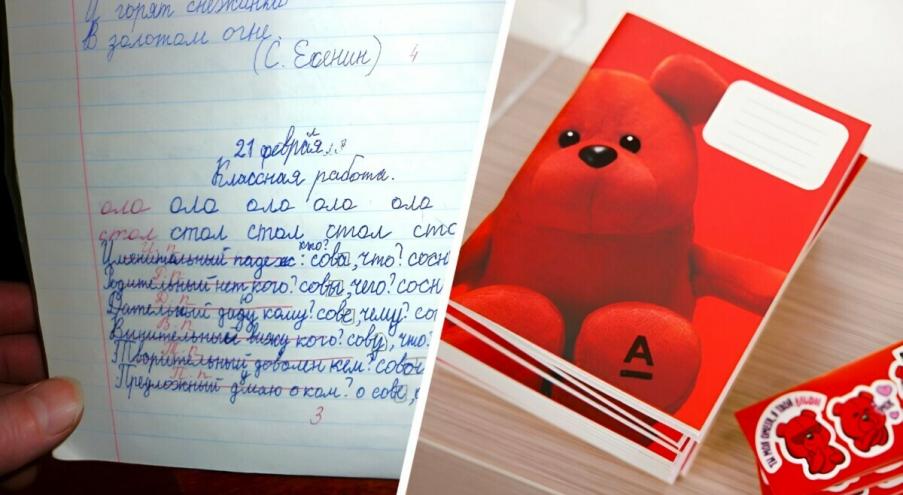 И горят снежинки
В золотом огне.
(С. Есенин) 4
21 февраля
Классная работа.
ола ола ола ола ола
стол стол стол стол сто
И. п.
Именительный падеж: кто? сова, что? сосн
Р. п.
Родительный нет кого? совы, чего? сосн
Д. п. ю
Дательный даду кому? сове, чему? со
В. п.
Винительный вижу кого? сову, что?
Т. п.
Творительный доволен кем? совой
П. п.
Предложный думаю о ком? о сове,
3
А
ТЫ МОЯ ОМЕГА, Я ТВОЙ АЛЬФА!